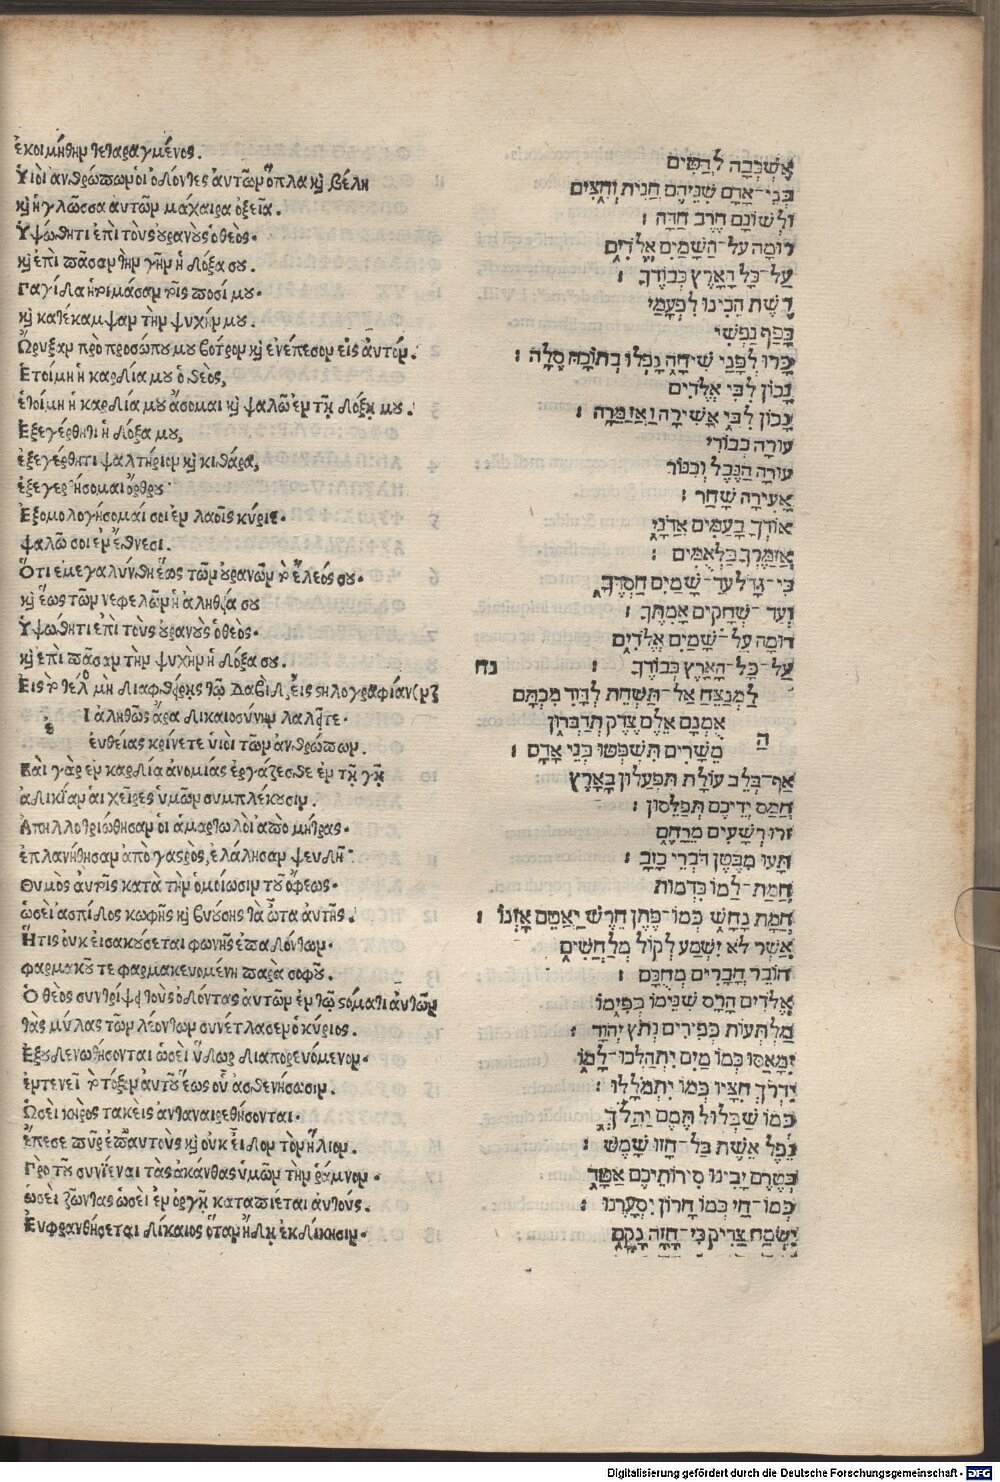 ἐκοιμήθην τεταραγμένος.
Υἱοὶ ἀνθρώπων οἱ ὀδόντες ἀυτῶν ὅπλα κὶ βέλη
κὶ ἡ γλῶσσα ἀυτῶν μάχαιρα ὀξεῖα.
Ὑψώθητι ἐπὶ τοὺς οὐρανοὺς ὁ θεὸς·
κὶ ἐπὶ πᾶσαν τὴν γῆν ἡ δόξα σου.
Παγίδα ἡτοίμασαν τοῖς ποσί μου·
κὶ κατεκαμψαν τὴν ψυχήν μου.
Ὤρυξαν πρὸ προσώπου μου βότρον κὶ ἐνέπεσον εἰς ἀυτόν.
Ετοίμη ἡ καρδία μου ὁ θεὸς,
ἑτοίμη ἡ καρδία μου ἄσομαι κὶ ψαλῶ ἐν τῇ δόξῃ μου.
Εξεγέρθητι ἡ δόξα μου,
ἐξεγέρθητι ψαλτήριον κὶ κιθάρα,
ἐξεγερθήσομαι ὄρθρου
Εξομολογήσομαί σοι ἐν λαοῖς κύριε·
ψαλῶ σοι ἐν ἔθνεσι.
Ὅτι ἐμεγαλύνθη ἕως τῶν οὐρανῶν τὸ ἔλεός σου·
κὶ ἕως τῶν νεφελῶν ἡ ἀλήθεια σου
Ὑψώθητι ἐπὶ τοὺς οὐρανοὺς ὁ θεὸς·
κὶ ἐπὶ πᾶσαν τὴν ψυχὴν ἡ δόξα σου.
Εἰς τὸ τέλος μὴ διαφθείρῃς τῷ Δαβὶδ, εἰς στηλογραφίαν
Ι ἀληθῶς ἄρα δικαιοσύνην λαλεῖτε·
ἐυθείας κρίνετε υἱοὶ τῶν ἀνθρώπων.
Καὶ γὰρ ἐν καρδία ἀνομίας ἐργάζεσθε ἐν τῇ γῇ
ἀδικίαν ἁι χεῖρες ὑμῶν συμπλέκουσιν.
Απηλλοτριώθησαν οἱ ἁμαρτωλοὶ ἀπὸ μήτρας·
ἐπλανήθησαν ἀπὸ γαστρὸς, ἐλάλησαν ψευδῆ
Θυμὸς ἀυτοῖς κατὰ τὴν ὁμοίωσιν τοῦ ὄφεως·
ὡσεὶ ἀσπίδος κωφῆς κὶ βυούσης τὰ ὦτα ἀυτῆς.
Ἥτις ὀυκ εἰσακούσεται φωνῆς ἐπαδόντων·
φαρμακοῦ τε φαρμακευομένη παρὰ σοφοῦ.
Ὁ θεὸς συντρίψει τοὺς ὀδόντας ἀυτῶν ἐν τῷ στόματι ἀυτῶν
τὰς μύλας τῶν λέοντων συνέτλασεν ὁ κύριος.
Εξουδενωθήσονται ὡσεὶ ὕδωρ διαπορευόμενον·
ἐμτενεῖ τὸ τόξον ἀυτοῦ ἕως οὗ ἀσθενήσωσιν.
Ὡσεὶ κηρὸς τακεὶς ἀνταναιρεθήσονται·
ἔπεσε πῦρ ἐπ ἀυτοὺς κὶ ὀυκ εἶδον τὸν ἥλιον.
Προ τοῦ συνιέναι τὰς ἀκάνθας ὑμῶν τὴν ῥάμνον·
ὡσεὶ ζῶντας ὡσεὶ ἐν ὀργῇ καταπιέται ἀυτούς.
Ευφρανθήσεται δίκαιος ὅταν ἴδῃ ἐκδίκησιν·
אֶשְׁכְּבָה לֹהֲטִים
בְּנֵי־אָדָם שִׁנֵּיהֶם חֲנִית וְחִצִּים
וּלְשׁוֹנָם חֶרֶב חַדָּה :
רוּמָה עַל־הַשָּׁמַיִם אֱלֹדִים
עַל־כָּל הָאָרֶץ כְּבוֹדֶךָ :
רֶשֶׁת הֵכִינוּ לִפְעָמַי
כָּפַף נַפְשִׁי
כָּרוּ לְפָנַי שִׁיחָה נָפְלוּ בְתוֹכָהּ סֶלָה :
נָכוֹן לִבִּי אֱלֹדִים
נָכוֹן לִבִּי אָשִׁירָה וַאֲזַמֵּרָה :
עוּרָה כְבוֹדִי
עוּרָה הַנֵּבֶל וְכִנּוֹר
אָעִירָה שָׁחַר :
אוֹדְךָ בָעַמִּים אֲדֹנָי
אֲזַמֶּרְךָ בַּלְאֻמִּים :
כִּי־גָדֹל עַד־שָׁמַיִם חַסְדֶּךָ
וְעַד־שְׁחָקִים אֲמִתֶּךָ :
רוּמָה עַל־שָׁמַיִם אֱלֹדִים
עַל־כָּל־הָאָרֶץ כְּבוֹדֶךָ :
נח
לַמְנַצֵּחַ אַל־תַּשְׁחֵת לְדָוִד מִכְתָּם
הַ
אֻמְנָם אֵלֶם צֶדֶק תְּדַבֵּרוּן
מֵשָׁרִים תִּשְׁפְּטוּ בְּנֵי אָדָם :
אַף־בְּלֵב עוֹלָת תִּפְעָלוּן בָּאָרֶץ
חֲמַס יְדֵיכֶם תְּפַלֵּסוּן :
זֹרוּ רְשָׁעִים מֵרָחֶם
תָּעוּ מִבֶּטֶן דֹּבְרֵי כָזָב :
חֲמַת־לָמוֹ כִּדְמוּת
חֲמַת נָחָשׁ כְּמוֹ־פֶתֶן חֵרֵשׁ יַאְטֵם אָזְנוֹ :
אֲשֶׁר לֹא יִשְׁמַע לְקוֹל מְלַחֲשִׁים
חוֹבֵר חֲבָרִים מְחֻכָּם :
אֱלֹדִים הֲרָס שִׁנֵּימוֹ בְּפִימוֹ
מַלְתְּעוֹת כְּפִירִים נְתֹץ יְהוָֹד :
יִמָּאֲסוּ כְמוֹ מַיִם יִתְהַלְּכוּ־לָמוֹ
יִדְרֹךְ חִצָּיו כְּמוֹ יִתְמֹלָלוּ :
כְּמוֹ שַׁבְּלוּל תֶּמֶס יַהֲלֹךְ
נֵפֶל אֵשֶׁת בַּל־חָזוּ שָׁמֶשׁ :
בְּטֶרֶם יָבִינוּ סִירוֹתֵיכֶם אָטָד
כְּמוֹ־חַי כְּמוֹ חָרוֹן יִסְעָרֶנּוּ :
יִשְׂמַח צַדִּיק כִּי־חָזָה נָקָם
Digitalisierung gefördert durch die Deutsche Forschungsgemeinschaft - DFG